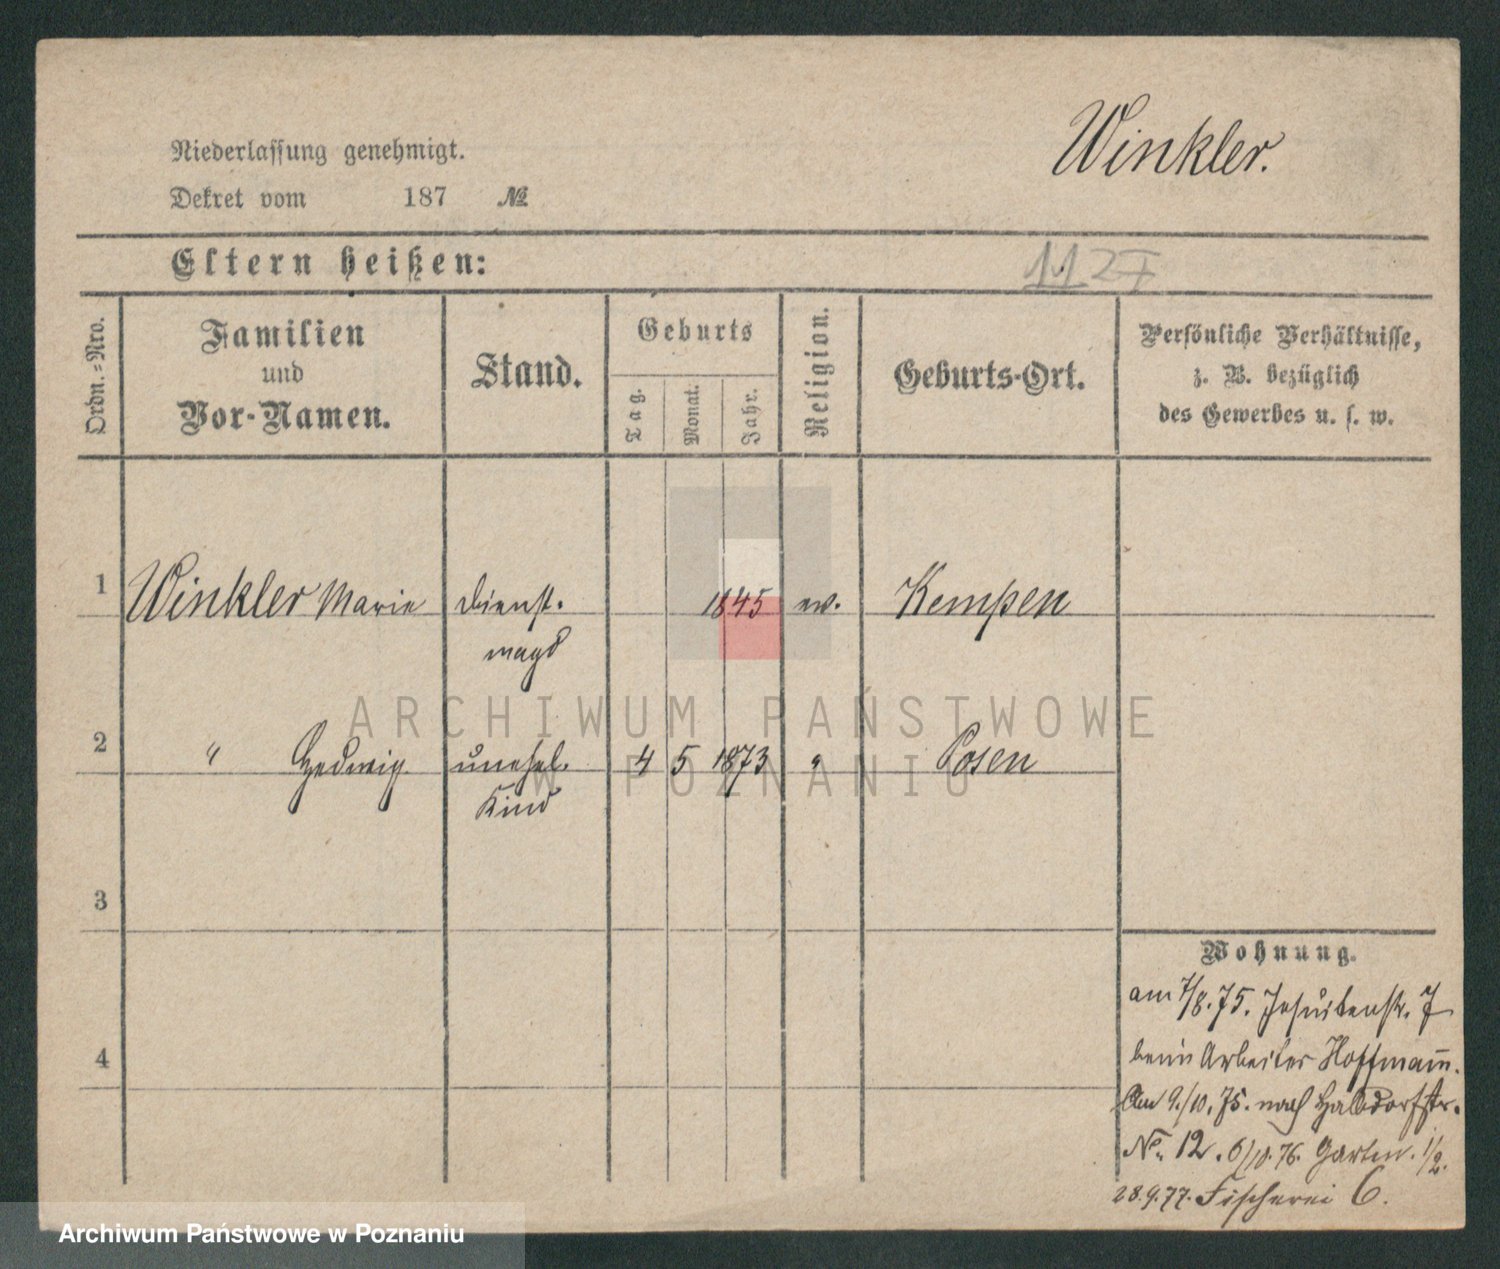 Winkler.
Niederlassung genehmigt.
Dekret vom 187 №
Eltern heißen:
1127
Ordn.=Nro.
Familien
und
Vor-Namen.
Stand.
Geburts
Tag.
Monat.
Jahr.
Religion.
Geburts-Ort.
Persönliche Verhältnisse,
z. B. bezüglich
des Gewerbes u. s. w.
1 Winkler Marie Dienst- 1845 ev. Kempen
magd
2 " Hedwig unehel. 4 5 1873 " Posen
Kind
3
4
Wohnung.
am 7/8.75. Jesuitenstr. 7
beim Arbeiter Hoffmann.
Am 9./10.75. nach Halbdorfstr.
No 12. 6/10.76. Garten. 1/2.
28.9.77. Fischerei 6.
ARCHIWUM PAŃSTWOWE
W POZNANIU
Archiwum Państwowe w Poznaniu